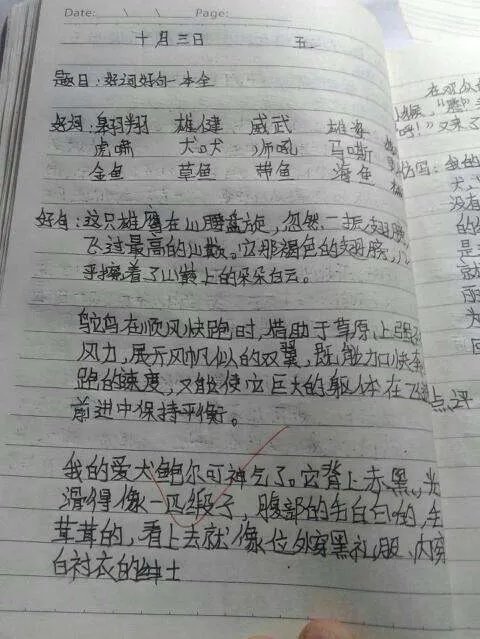 Date: \ \ Page:
十月三日 五
题目：好词好句一本全
好词：翱翔 雄健 威武 雄姿
虎啸 犬吠 狮吼 马嘶
金鱼 草鱼 带鱼 海鱼
好句：这只雄鹰在山腰盘旋，忽然一振翅膀，
飞过最高的山巅。它那褐色的翅膀，几
乎擦着了山巅上的朵朵白云。
鸵鸟在顺风快跑时，借助于草原上强
风力，展开风帆似的双翼，既能加快奔
跑的速度，又能使它巨大的躯体在飞
前进中保持平衡。
我的爱犬鲍尔可神气了。它背上赤黑，光
滑得像一匹缎子，腹部的毛白白的，毛
茸茸的，看上去就像位外穿黑礼服、内穿
白衬衣的绅士
在观众
"嘭"
呼！"又来了
仿写：我的
犬
没有
的
是
就
丽
为
回
点评